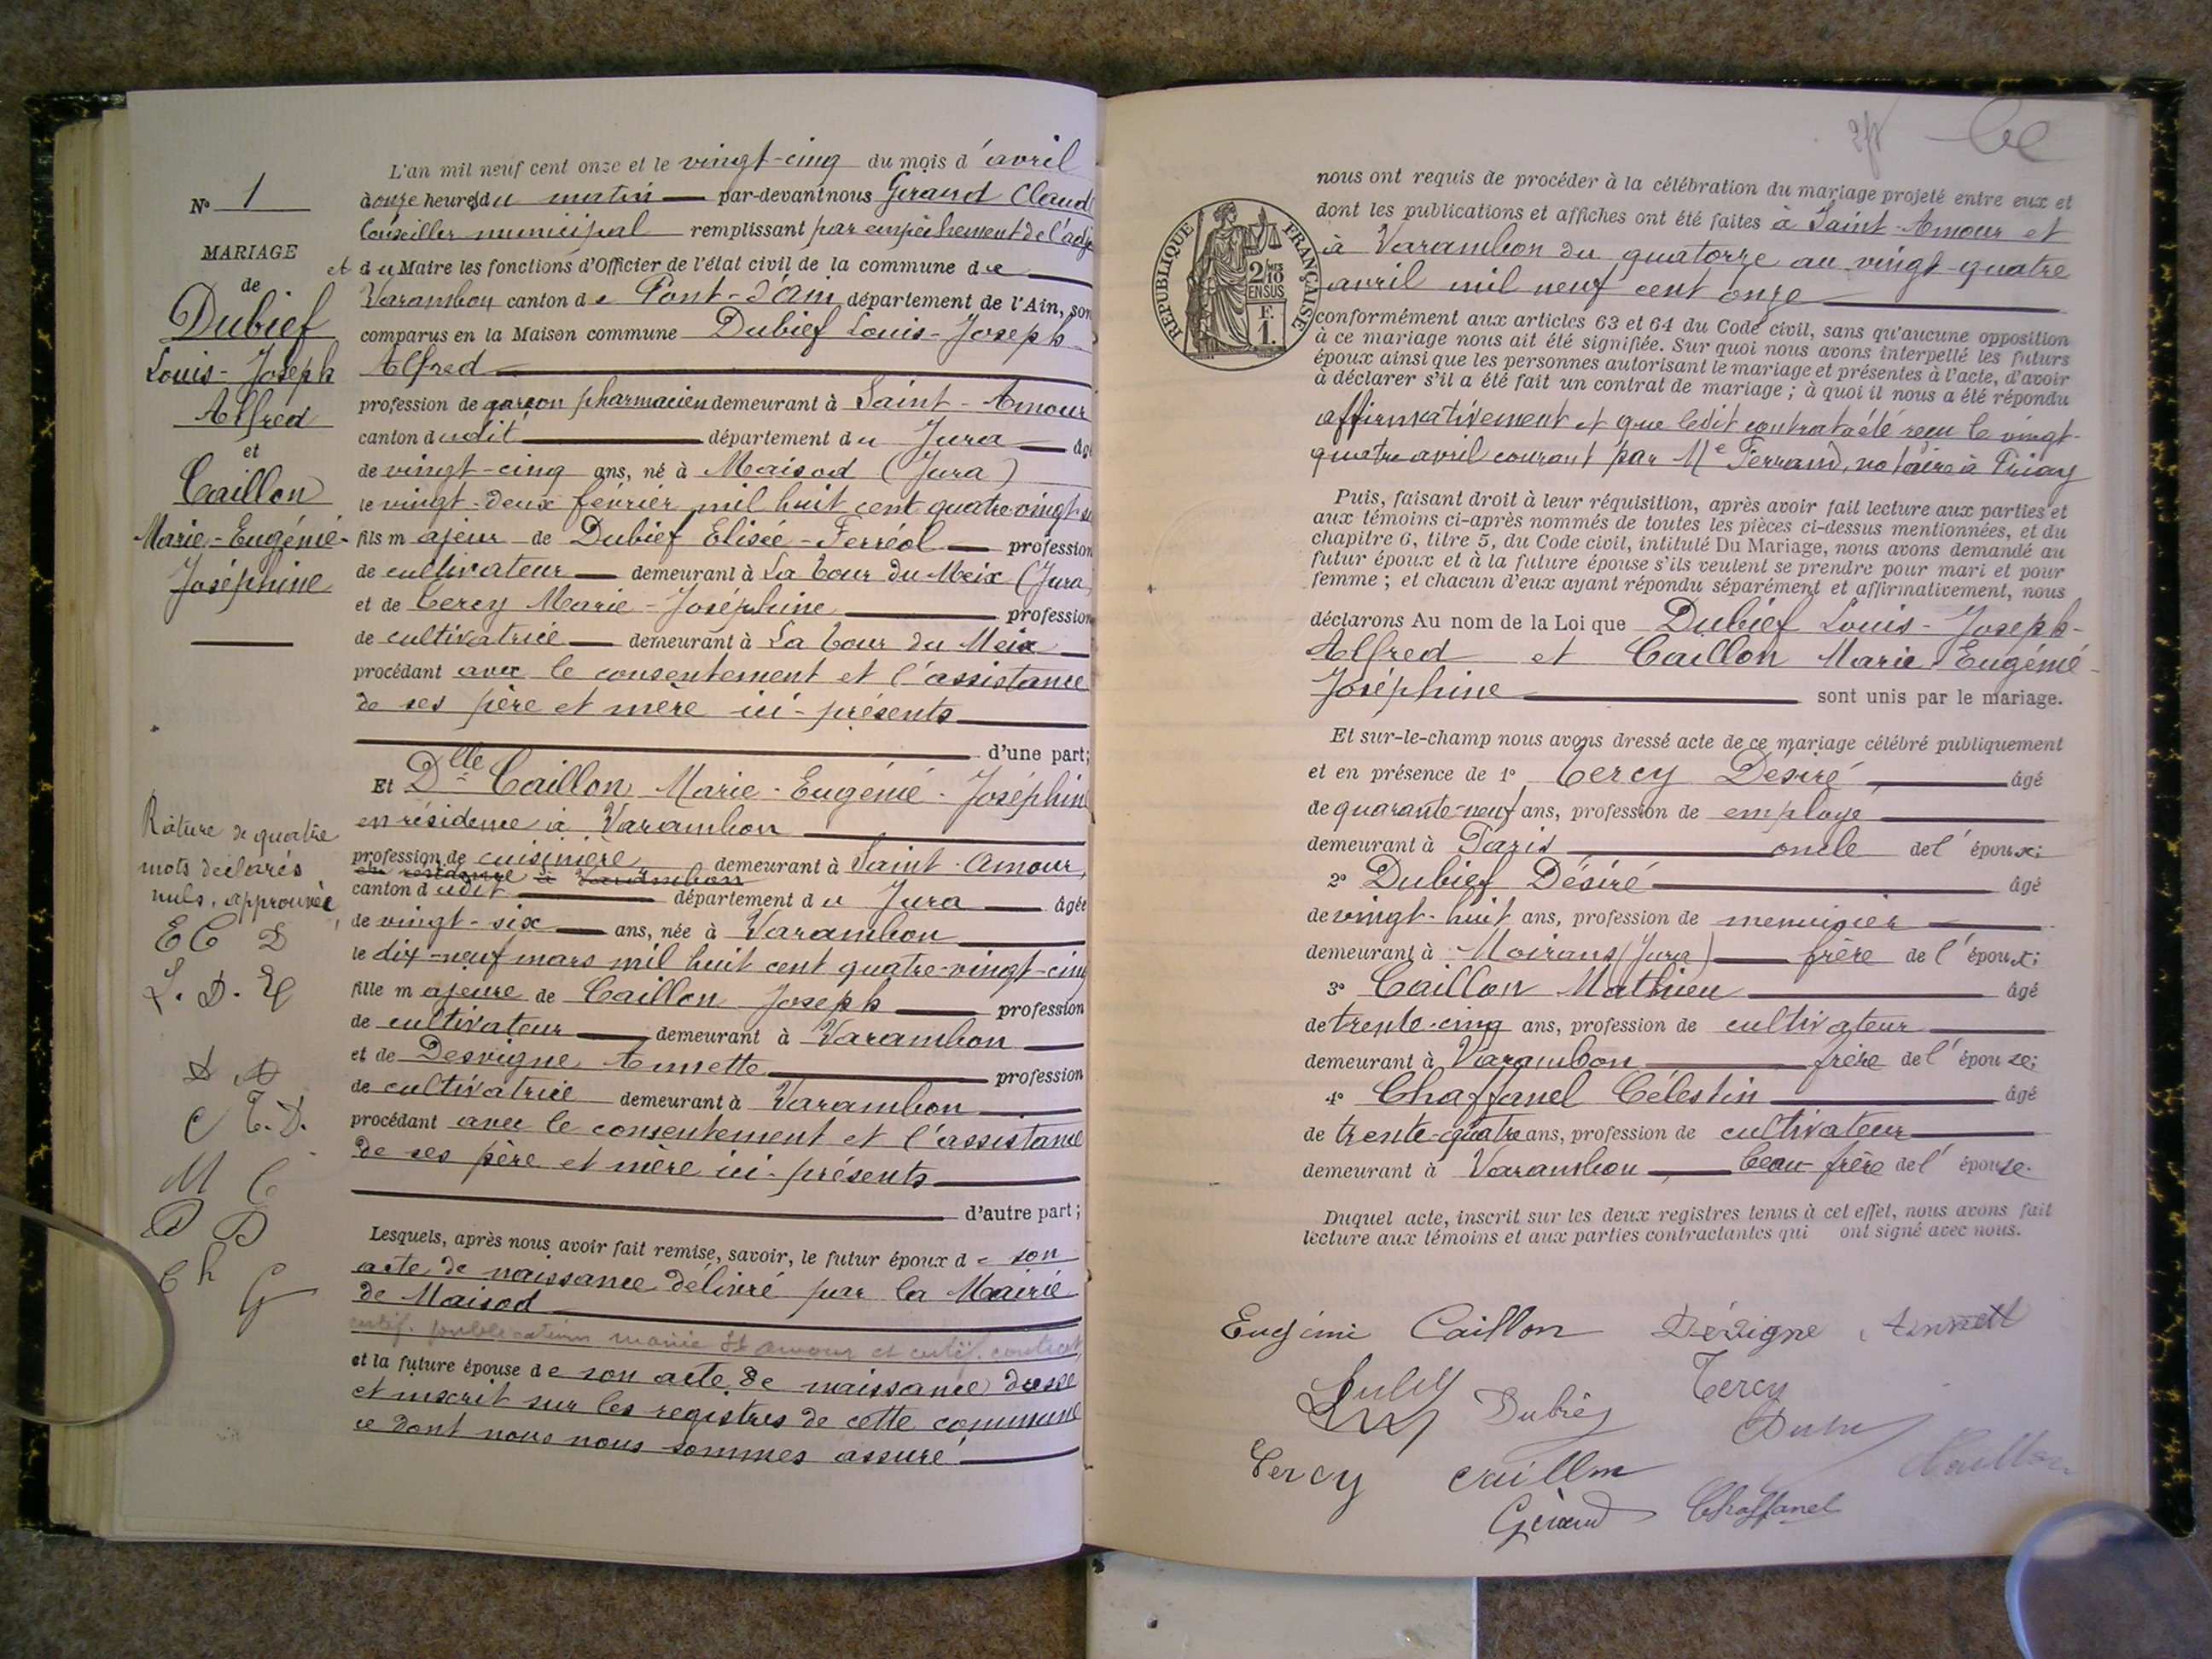 L'an mil neuf cent onze et le vingt-cinq du mois d'avril
N° 1
à onze heures du matin par-devant nous Géraud Claude
Conseiller municipal remplissant par empêchement de l'adj
et du Maire les fonctions d'Officier de l'état civil de la commune de
Varambon canton de Pont-d'Ain, département de l'Ain, son
comparus en la Maison commune Dubief Louis-Joseph-
Alfred
profession de garçon pharmacien demeurant à Saint-Amour
canton dudit département du Jura âgé
de vingt-cinq ans, né à Maisod (Jura)
le vingt-deux février mil huit cent quatre-vingt-si
fils majeur de Dubief Elisée-Ferréol profession
de cultivateur demeurant à La Tour du Meix (Jura
et de Tercy Marie-Joséphine profession
de cultivatrice demeurant à La Tour du Meix
procédant avec le consentement et l'assistance
de ses père et mère ici-présents
d'une part;
Et Dlle Caillon Marie-Eugénie-Joséphine
en résidence à Varambon
profession de cuisinière demeurant à Saint-Amour,
en résidence à Varambon
canton dudit département du Jura âgée
de vingt-six ans, née à Varambon
le dix-neuf mars mil huit cent quatre-vingt-cinq
fille majeure de Caillon Joseph profession
de cultivateur demeurant à Varambon
et de Desvigne Annette profession
de cultivatrice demeurant à Varambon
procédant avec le consentement et l'assistance
de ses père et mère ici-présents
d'autre part;
Lesquels, après nous avoir fait remise, savoir, le futur époux de son
acte de naissance délivré par la Mairie
de Maisod
certif. publications mairie St Amour et certif. contrat,
et la future épouse de son acte de naissance dressé
et inscrit sur les registres de cette commune
ce dont nous nous sommes assuré
MARIAGE
de
Dubief
Louis-Joseph
Alfred
et
Caillon
Marie-Eugénie-
Joséphine
Râture de quatre
mots déclarés
nuls, approuvée
EC D
L. D.
D A
C T. D.
M C
D D
Ch G
nous ont requis de procéder à la célébration du mariage projeté entre eux et
dont les publications et affiches ont été faites à Saint-Amour et
à Varambon du quatorze au vingt-quatre
avril mil neuf cent onze
RÉPUBLIQUE FRANÇAISE
2/10 MES
EN SUS
F.
1.
conformément aux articles 63 et 64 du Code civil, sans qu'aucune opposition
à ce mariage nous ait été signifiée. Sur quoi nous avons interpellé les futurs
époux ainsi que les personnes autorisant le mariage et présentes à l'acte, d'avoir
à déclarer s'il a été fait un contrat de mariage; à quoi il nous a été répondu
affirmativement et que ledit contrat a été reçu le vingt-
quatre avril courant par Me Ferrand, notaire à Priay
Puis, faisant droit à leur réquisition, après avoir fait lecture aux parties et
aux témoins ci-après nommés de toutes les pièces ci-dessus mentionnées, et du
chapitre 6, titre 5, du Code civil, intitulé Du Mariage, nous avons demandé au
futur époux et à la future épouse s'ils veulent se prendre pour mari et pour
femme; et chacun d'eux ayant répondu séparément et affirmativement, nous
déclarons Au nom de la Loi que Dubief Louis-Joseph-
Alfred et Caillon Marie-Eugénie-
Joséphine sont unis par le mariage.
Et sur-le-champ nous avons dressé acte de ce mariage célébré publiquement
et en présence de 1° Tercy Désiré âgé
de quarante-neuf ans, profession de employé
demeurant à Paris oncle de l'époux;
2° Dubief Désiré âgé
de vingt-huit ans, profession de menuisier
demeurant à Moirans (Jura) frère de l'époux;
3° Caillon Mathieu âgé
de trente-cinq ans, profession de cultivateur
demeurant à Varambon frère de l'épouse;
4° Chaffanel Célestin âgé
de trente-quatre ans, profession de cultivateur
demeurant à Varambon beau-frère de l'épouse.
Duquel acte, inscrit sur les deux registres tenus à cet effet, nous avons fait
lecture aux témoins et aux parties contractantes qui ont signé avec nous.
Eugénie Caillon Désvigne Annett
Dubief Tercy
Tercy Caillon Caillon
Géraud Chaffanel